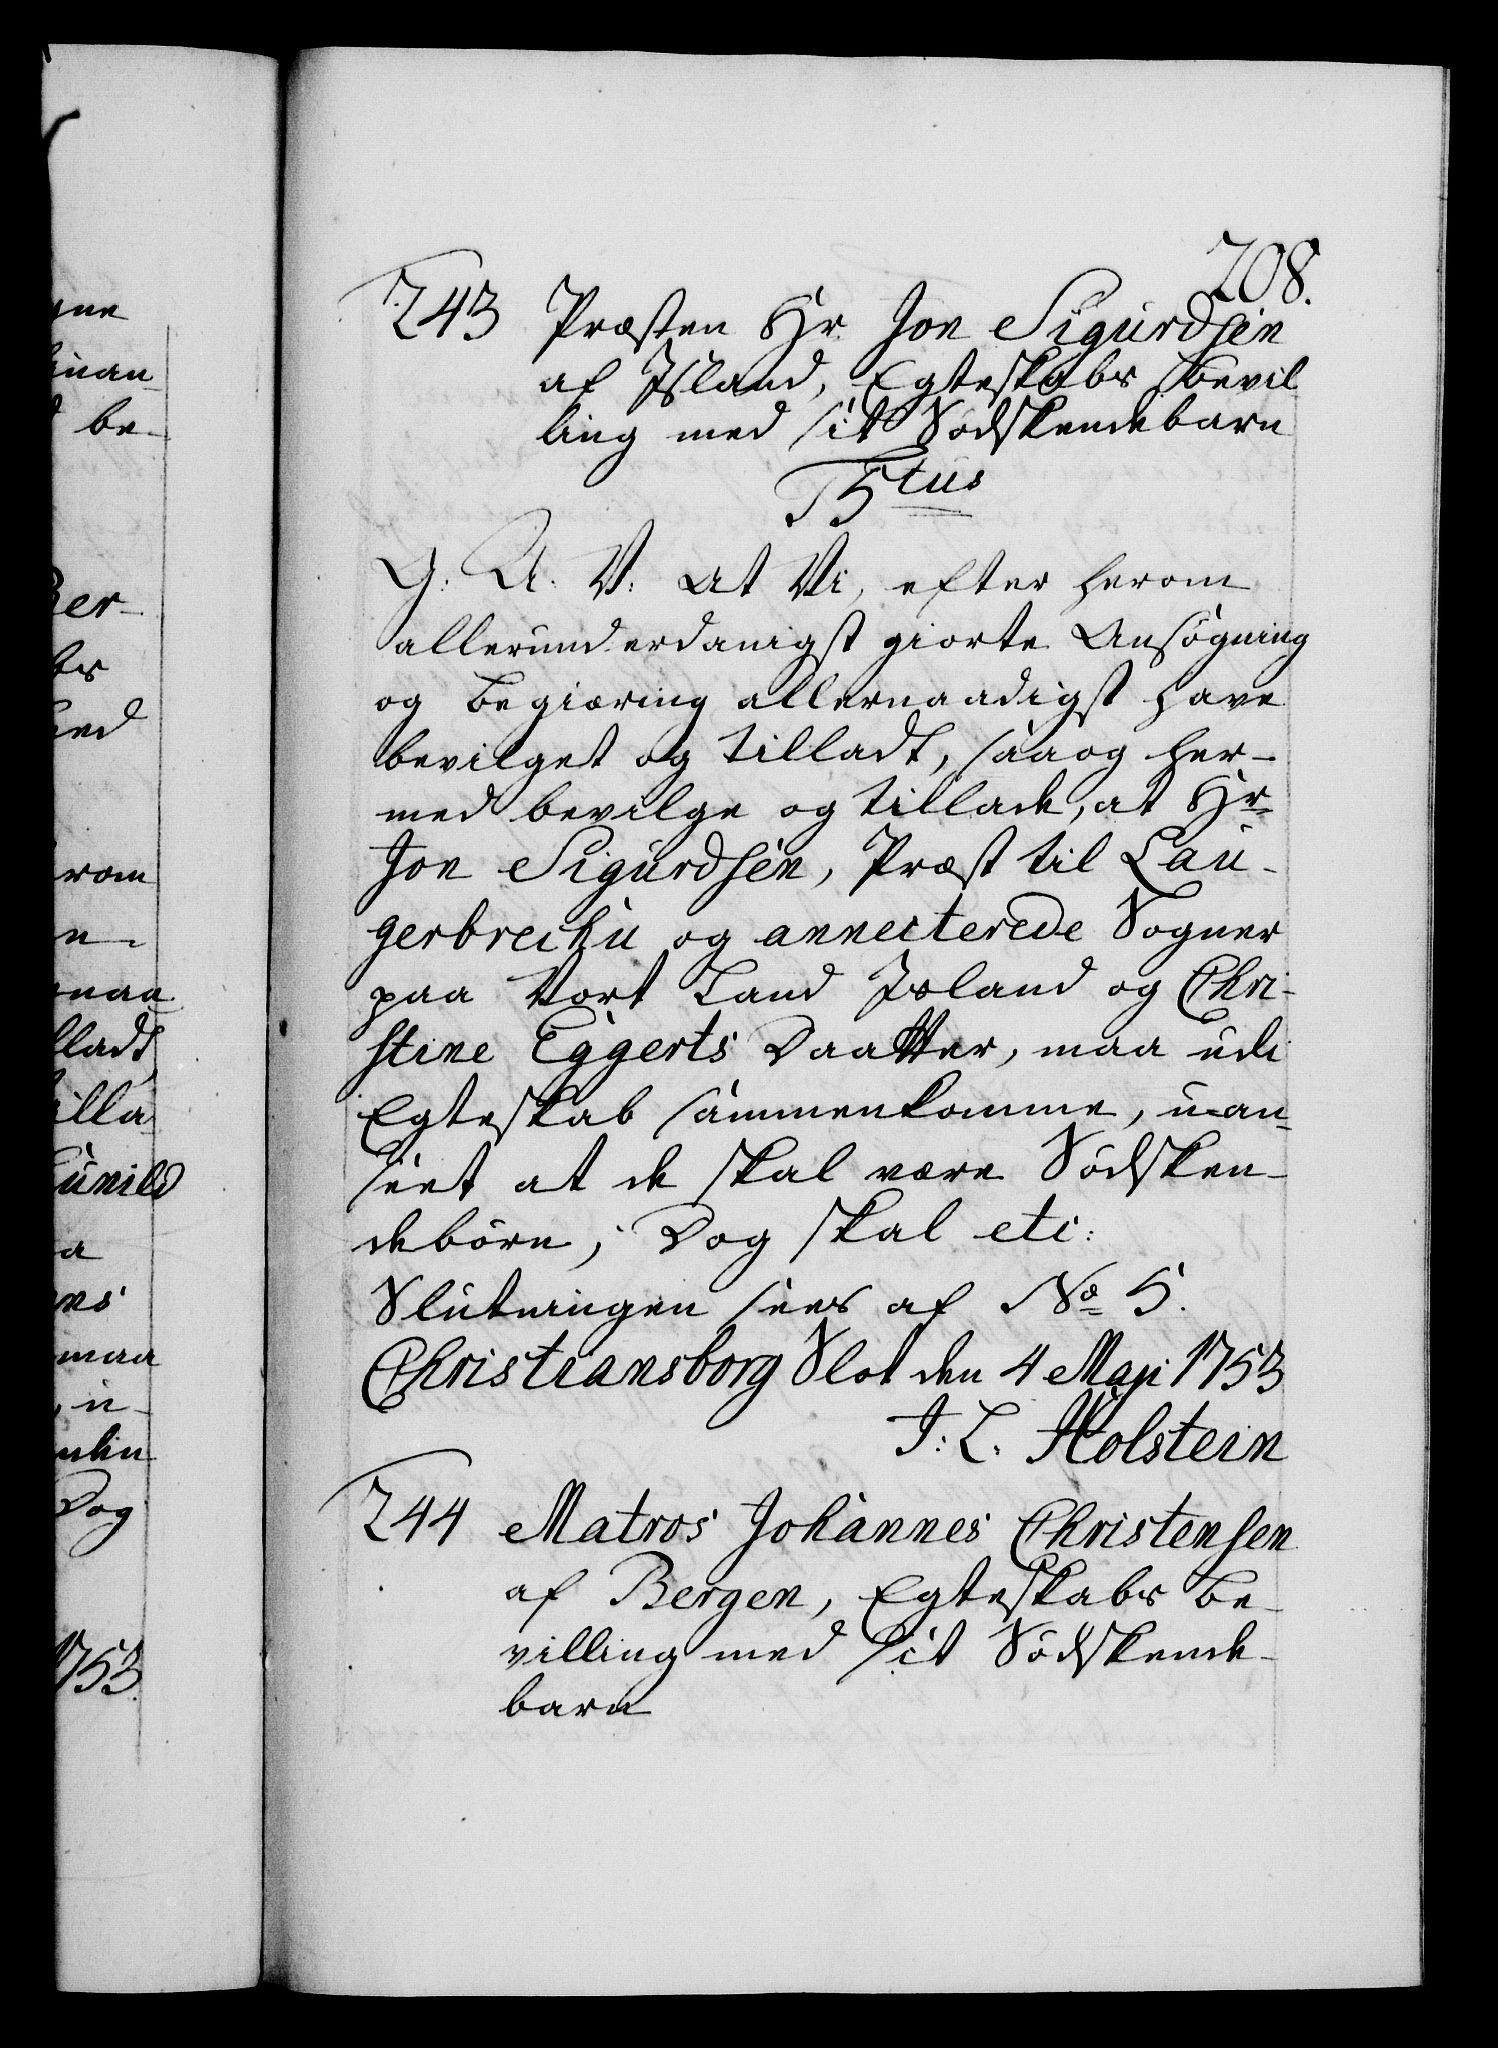 208.
243 Præsten Hr Jon Sigurdsen
af Island, Egteskabs Bevil
ling med sit Södskendebarn
F5tus
G: A. V: At Vi, efter herom
allerunderdanigst giorte Ansögning
og Begiæring allernaadigst have
bevilget og tilladt, saa og her-
med bevilge og tillade, at Hr
Jon Sigurdsen, Præst til Lau-
gerbrecku og annecterede Sogner
paa Vort Land Island og Chri-
stine Eggerts Daatter, maa udi
Egteskab sammenkomme, u-an-
seet at de skal være Södsken-
debörn; Dog skal etc:
Slutningen sees af No 5.
Christiansborg Slot den 4 Maji 1753
J: L. Holstein
244 Matros Johannes Christensen
af Bergen, Egteskabs Be-
villing med sit Södskende-
barn
be-
Ber-
rom
maa
ladt
illa
a
maa
, u-
Dog
1753.